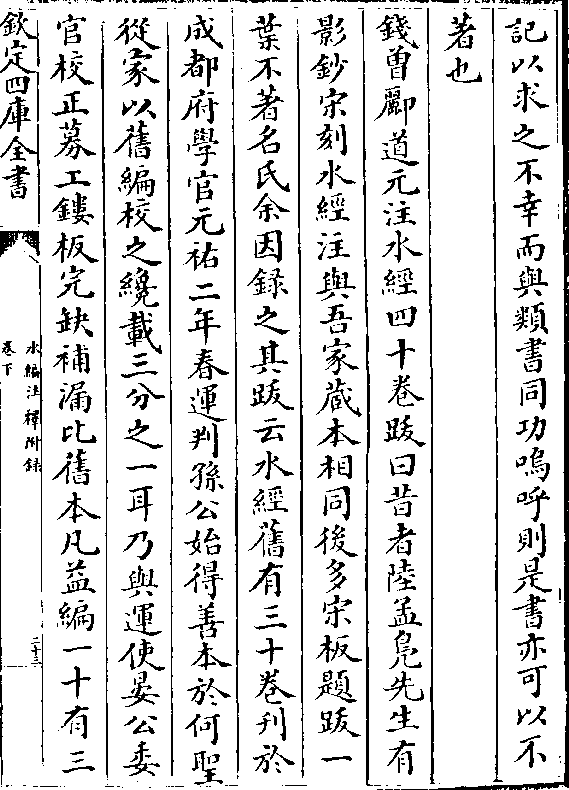 記以求之不幸而與類書同功嗚呼則是書亦可以不
著也
錢曾酈道元注水經四十卷跋曰昔者陸孟鳧先生有
影鈔宋刻水經注與吾家藏本相同後多宋板題跋一
葉不著名氏余因録之其跋云水經舊有三十卷刋於
成都府學官元祐二年春運判孫公始得善本於何聖
從家以舊編校之纔載三分之一耳乃與運使晏公委
官校正募工鏤板完缺補漏比舊本凡益編一十有三
欽定四庫全書
水經注釋附録
卷下
二十三